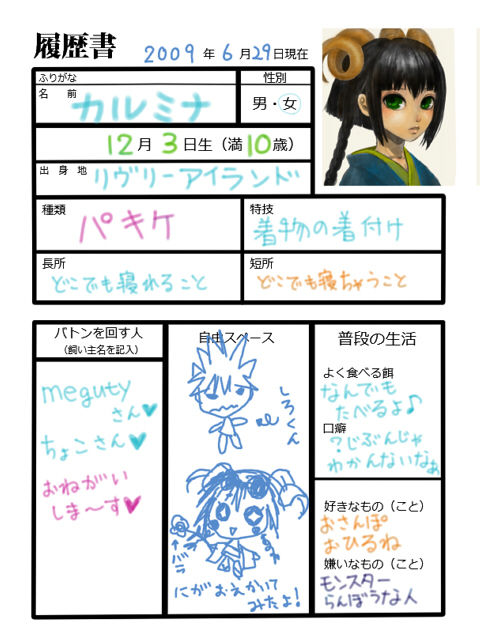 履歴書
2009年6月29日現在
ふりがな
性別
名 前
カルミナ
男・女
12月3日生（満10歳）
出 身 地
リヴリーアイランド
種類
パキケ
特技
着物の着付け
長所
どこでも寝れること
短所
どこでも寝ちゃうこと
バトンを回す人
（飼い主名を記入）
meguty
さん♥
ちょこさん♥
おねがい
しま〜す♥
自由スペース
しろくん
バラ
にがおえかいて
みたよ!
普段の生活
よく食べる餌
なんでも
たべるよ♪
口癖
?じぶんじゃ
わかんないなぁ
好きなもの（こと）
おさんぽ
おひるね
嫌いなもの（こと）
モンスター
らんぼうな人